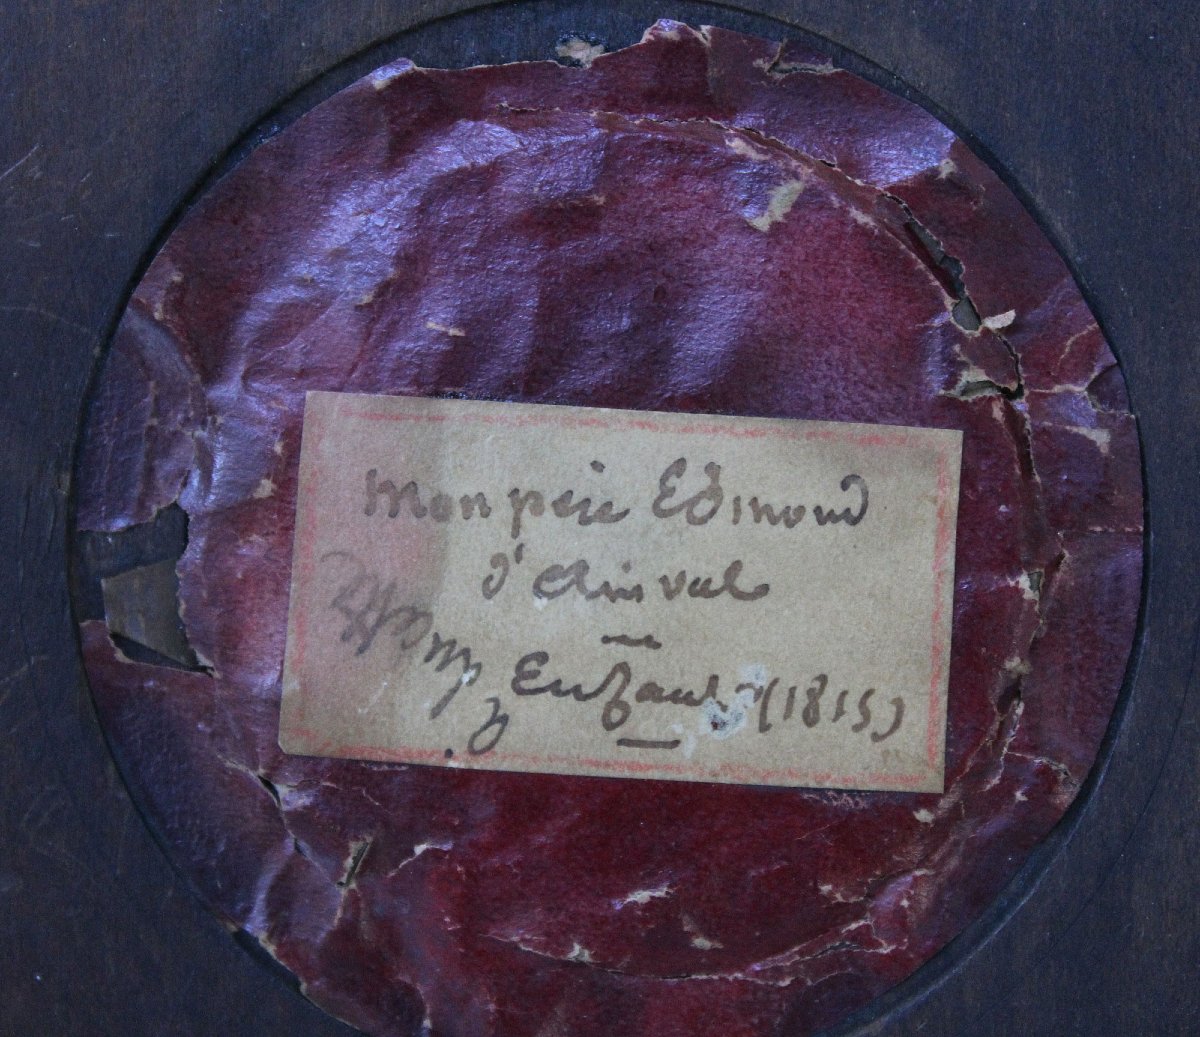 Mon père Edmond
d'Clinval
Enfant (1815)